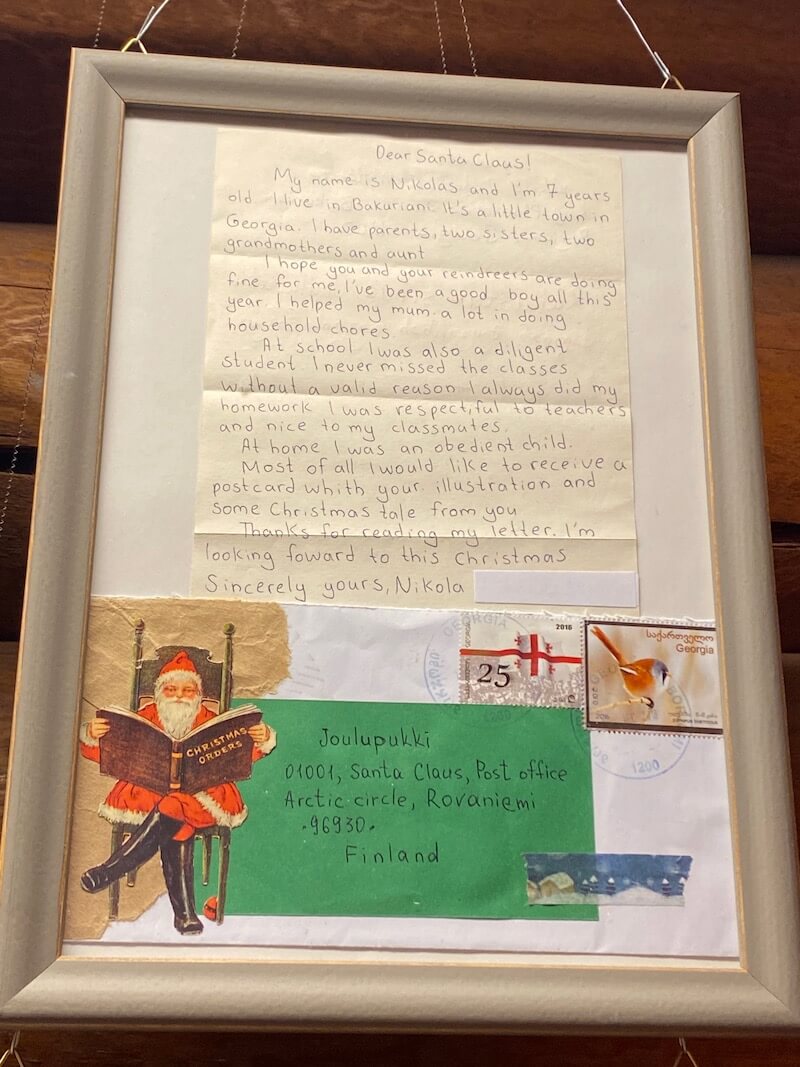 Dear Santa Claus!
My name is Nikolas and I'm 7 years
old. I live in Bakuriani. It's a little town in
Georgia. I have parents, two sisters, two
grandmothers and aunt
I hope you and your reindreers are doing
fine. for me, I've been a good boy all this
year. I helped my mum a lot in doing
household chores.
At school I was also a diligent
student I never missed the classes
without a valid reason I always did my
homework I was respectful to teachers
and nice to my classmates.
At home I was an obedient child.
Most of all I would like to receive a
postcard whith your illustration and
some Christmas tale from you
Thanks for reading my letter. I'm
looking foward to this Christmas
Sincerely yours, Nikola
GEORGIA
2016
25
საქართველო
Georgia
2016
1200
CHRISTMAS
ORDERS
Joulupukki
01001, Santa Claus, Post office
Arctic circle, Rovaniemi
·96930·
Finland